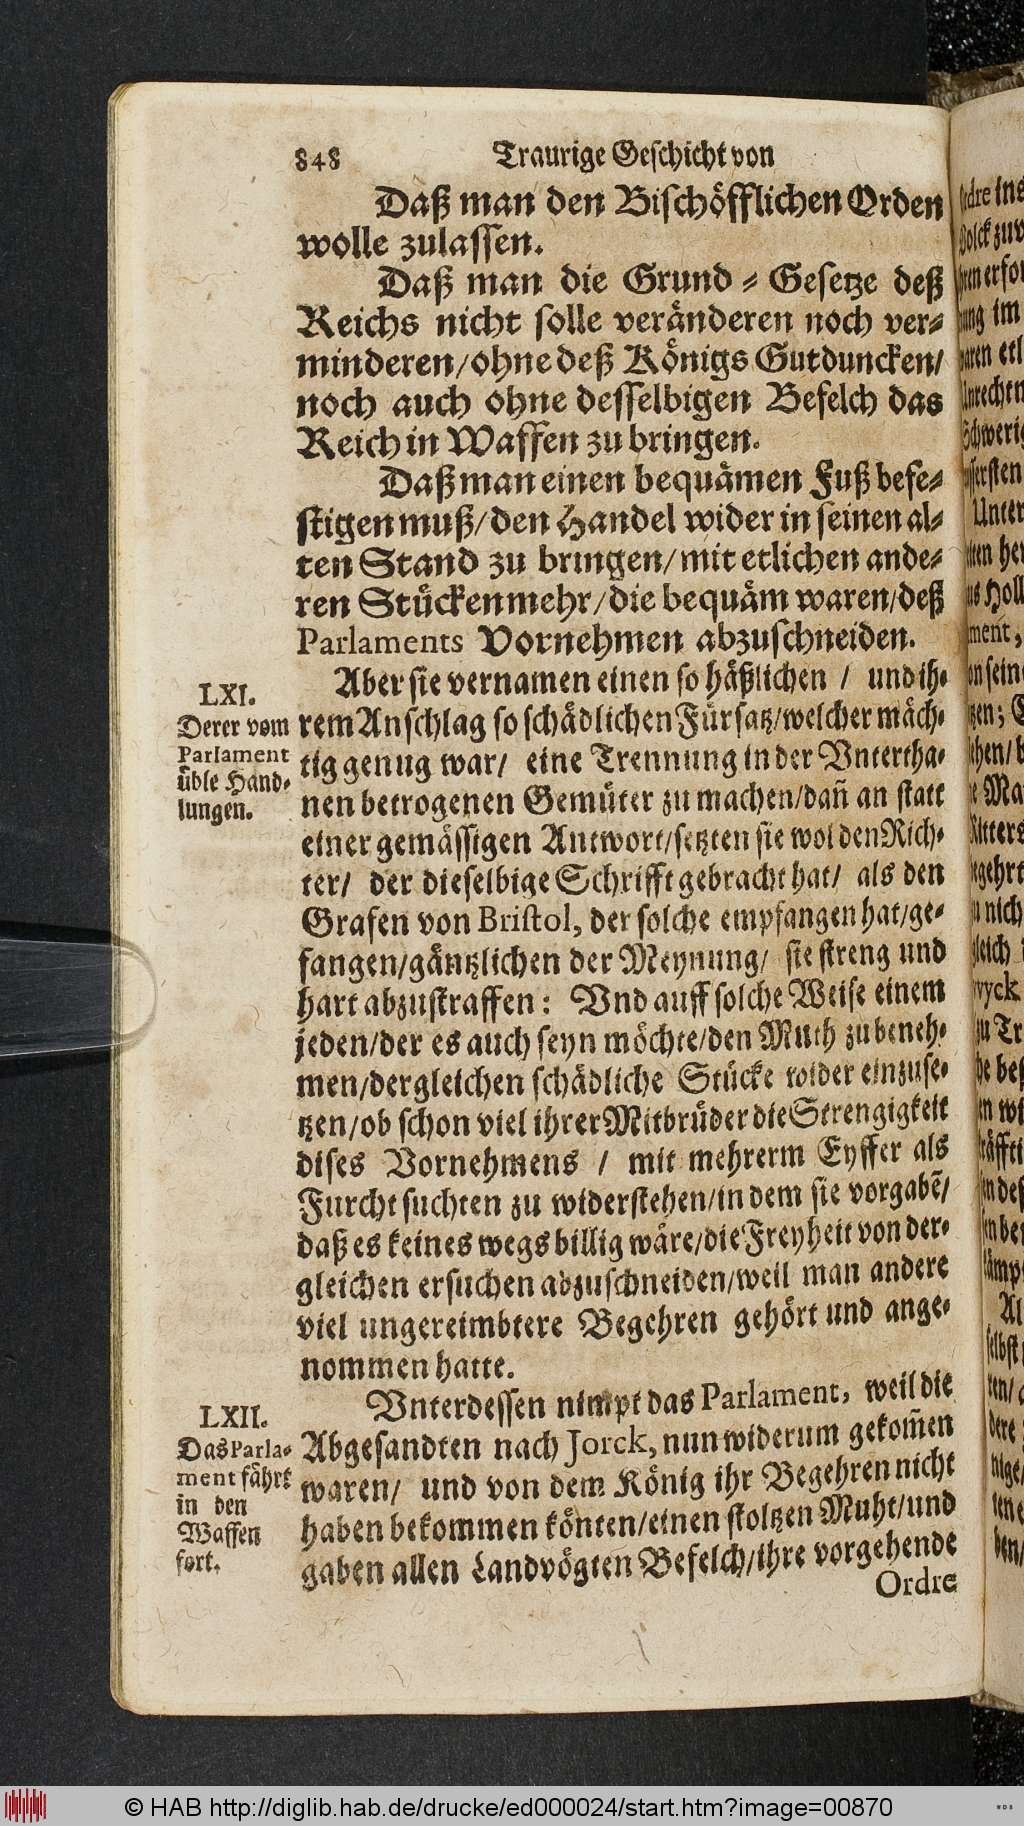 848 Traurige Geschicht von
Daß man den Bischöfflichen Orden
wolle zulassen.
Daß man die Grund-Gesetze deß
Reichs nicht solle veränderen noch ver-
minderen/ohne deß Königs Gutduncken/
noch auch ohne desselbigen Befelch das
Reich in Waffen zu bringen.
Daß man einen bequämen Fuß befe-
stigen muß/den Handel wider in seinen al-
ten Stand zu bringen/mit etlichen ande-
ren Stücken mehr/die bequäm waren/deß
Parlaments Vornehmen abzuschneiden.
LXI.
Derer vom
Parlament
üble Hand-
lungen.
Aber sie vernamen einen so häßlichen / und ih-
rem Anschlag so schädlichen Fürsatz/welcher mäch-
tig genug war/ eine Trennung in der Vntertha-
nen betrogenen Gemüter zu machen/dañ an statt
einer gemässigen Antwort/setzten sie wol den Rich-
ter/ der dieselbige Schrifft gebracht hat/ als den
Grafen von Bristol, der solche empfangen hat/ge-
fangen/gäntzlichen der Meynung/ sie streng und
hart abzustraffen: Vnd auff solche Weise einem
jeden/der es auch seyn möchte/den Muth zu beneh-
men/dergleichen schädliche Stücke wider einzuse-
tzen/ob schon viel ihrer Mitbrüder die Strengigkeit
dises Vornehmens / mit mehrerm Eyffer als
Furcht suchten zu widerstehen/in dem sie vorgabẽ/
daß es keines wegs billig wäre/die Freyheit von der-
gleichen ersuchen abzuschneiden/weil man andere
viel ungereimbtere Begehren gehört und ange-
nommen hatte.
LXII.
Das Parla-
ment fährt
in den
Waffen
fort.
Vnterdessen nimpt das Parlament, weil die
Abgesandten nach Jorck, nun widerum gekom̃en
waren/ und von dem König ihr Begehren nicht
haben bekommen könten/einen stoltzen Muht/und
gaben allen Landvögten Befelch/ihre vorgehende
Ordre
© HAB http://diglib.hab.de/drucke/ed000024/start.htm?image=00870